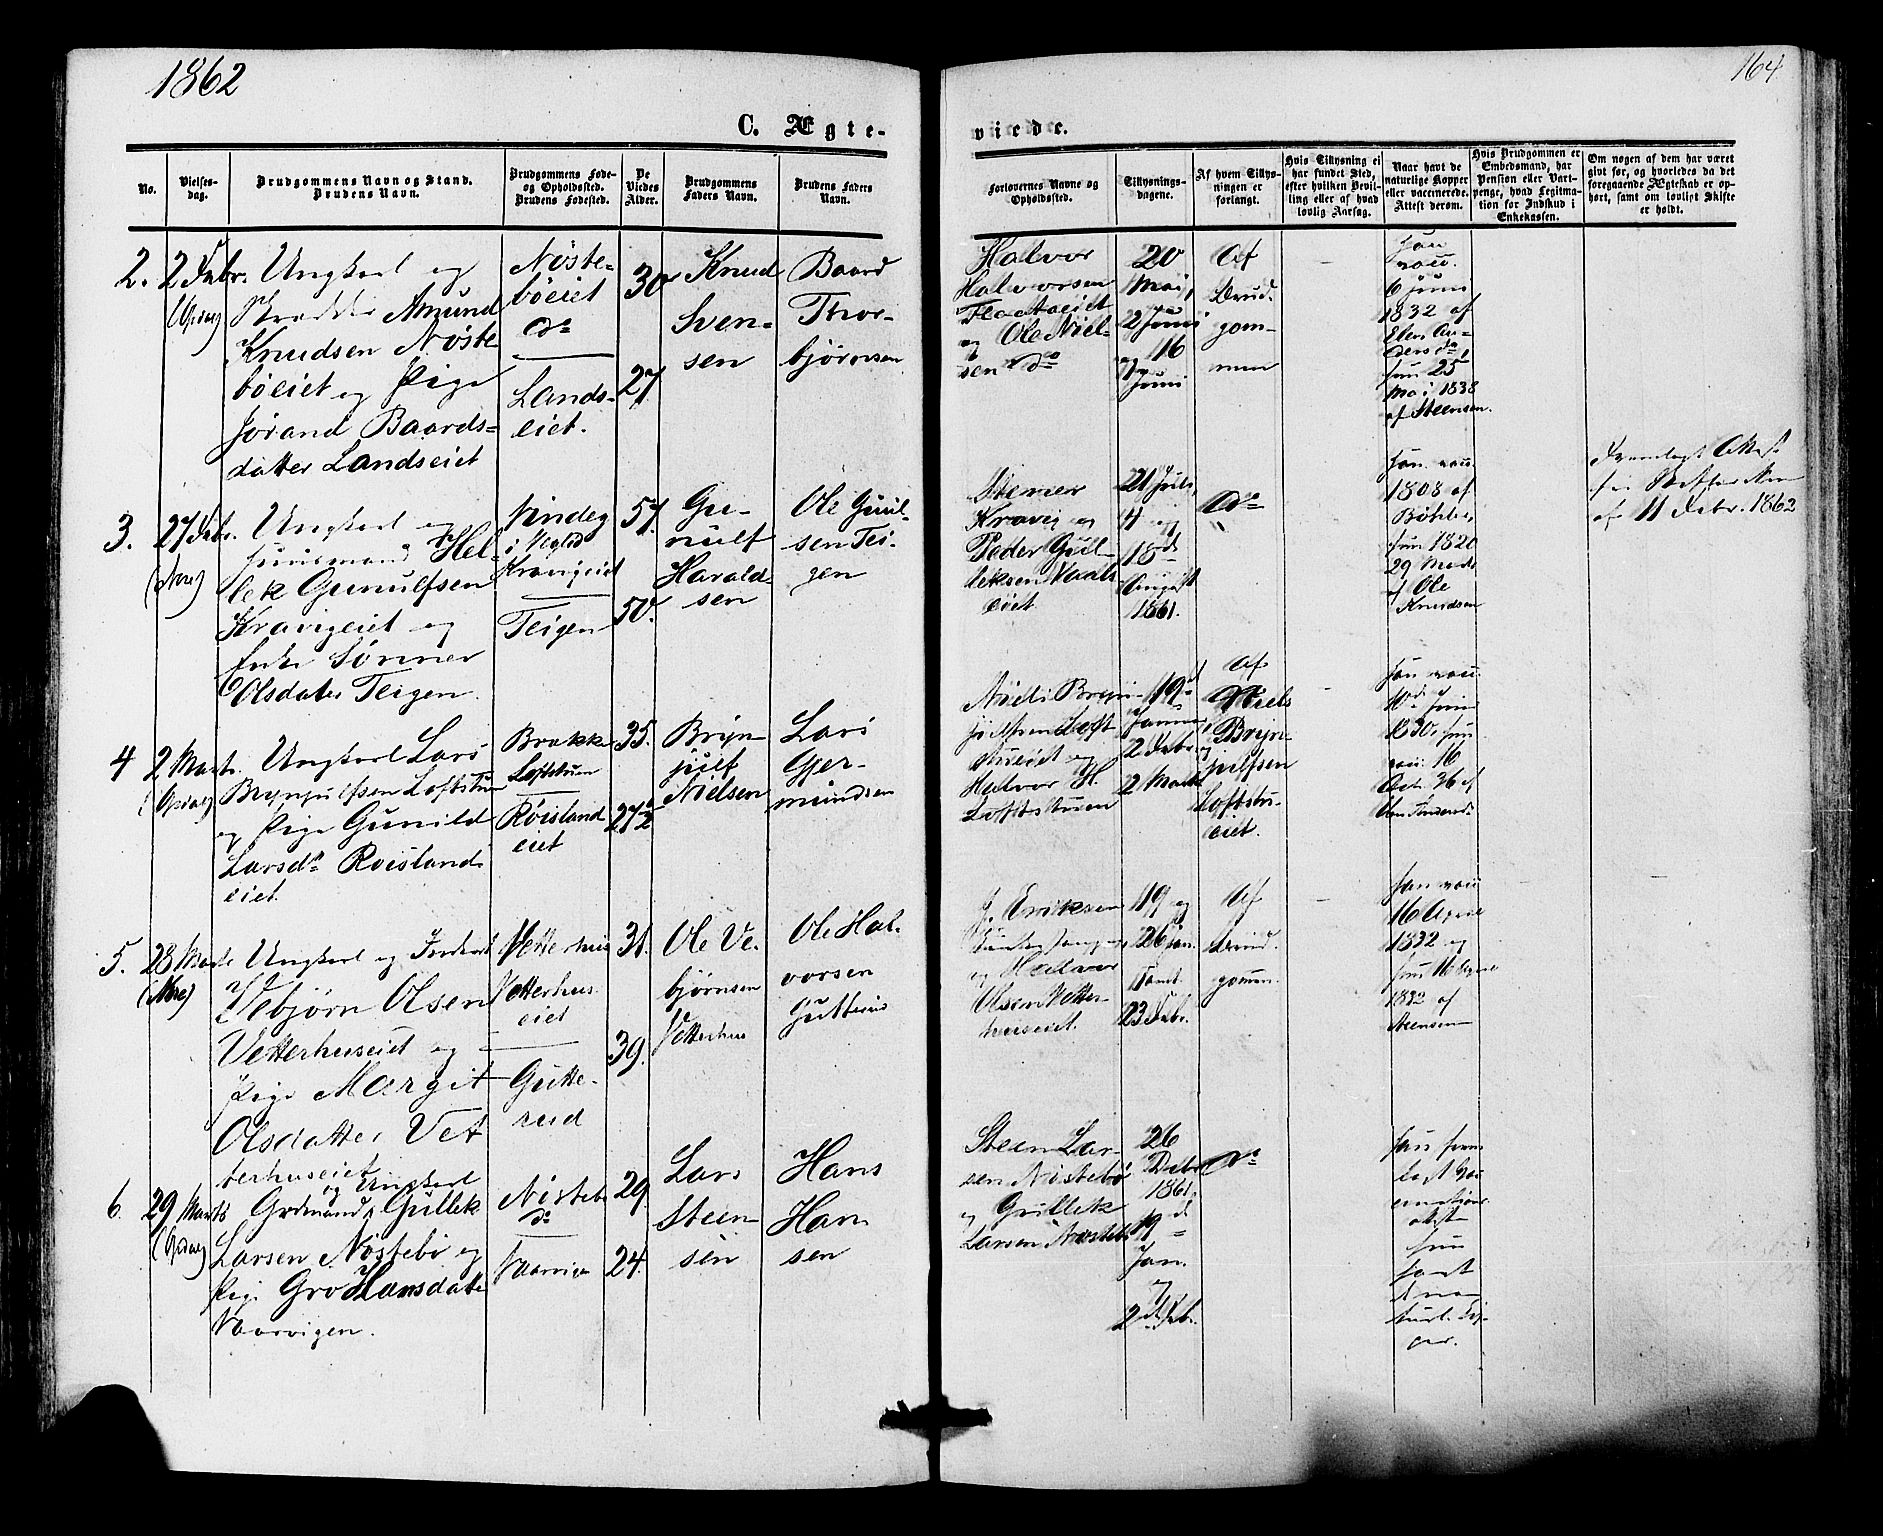 1862
164
C. Ægte-
viede.
No.
Vielses-
dag.
Brudgommens Navn og Stand.
Brudens Navn.
Brudgommens Føde-
og Opholdssted.
Brudens Fødested.
De
Viedes
Alder.
Brudgommens
Faders Navn.
Brudens Faders
Navn.
Forlovernes Navne og
Opholdssted.
Tillysnings-
dagene.
Af hvem Tillys-
ningen er
forlangt.
Hvis Tillysning ei
har fundet Sted,
efter hvilken Bevil-
ling eller af hvad
lovlig Aarsag.
Naar havt de
naturlige Kopper
eller vaccinerede.
Attest derom.
Hvis Brudgommen er
Embedsmand, har
Pension eller Vart-
penge, hvad Legitima-
tion for Indskud i
Enkekassen.
Om nogen af dem har været
gift før, og hvorledes da det
foregaaende Ægteskab er op-
hørt, samt om lovligt Skifte
er holdt.
2.
2 Febr.
(Opdal)
Ungkarl og
Amund
Knudsen Nøste-
bøeiet og Pige
Jørand Baards-
datter Landseiet
Nøste-
bøeiet
do
Lands-
eiet.
30
27
Knud
Sven-
sen
Baard
Thor-
bjørnsen
Halvor
Halvorsen
og Ole Niel-
sen do
20
Mai,
2 Juni
og 16
Juni
Af
Brud-
gom-
men
han
vac.
6 Juni
1832 af
hun 25
Mai 1838
af Steensen.
3.
27 Febr.
(Nore)
Ungkarl og
Huusmand Hel-
lek Gunulfsen
Kravigeiet og
Enke Sønner
Olsdatter Teigen.
Vindeg
i Vegli
Kravigeiet
Teigen
57.
50.
Gu-
nulf
Harald-
sen
Ole Guul-
sen Tei-
gen
Stener
Kravig og
Peder Gul-
leksen
eiet
21 Juli,
4 og
18de
August
1861.
do
han vac.
1808 af
hun 1820
29 Marts
af Ole
Knudsen
Fremlagt Attest
fra Skifteretten
af 11 Febr. 1862
4
2 Marts.
(Opdal)
Ungkarl Lars
Brynjulfsen Loftstuen
og Pige Gunild
Larsdr Røislands
eiet.
Brakke
Loftstuen
Røisland
eiet
35.
27½
Bryn-
julf
Nielsen
Lars
Gjer-
mundsen
Niels Bryn-
julfsen Loft-
stueiet og
Halvor H.
Loftstuen
19de
Januar,
2 Febr. og
2 Marts
Af
Niels
Bryn-
julfsen
Loftstu-
eiet.
han vac.
10de Juni
1830, hun
vac. 16
Oct. 36 af
5.
28 Marts
(Nore)
Ungkarl og
Vebjørn Olsen
Vetterhuseiet og
Pige Margit
Olsdatter Vet
terhuseiet
Vetterhus
Vetterhus-
eiet
Gutte-
rud
31.
39.
Ole Ve-
bjørnsen
Vetterhus
Ole Hal-
vorsen
Gutterud
J. Eriksen
og Halvor
Olsen Vetter-
huseiet.
19 og
26 Jan.
samt
23 Febr.
Af
Brud-
gommen.
han vac
16 April
1832 og
hun 16 April
1832 af
Steensen
6.
29 Marts
(Opdal)
og Ungkarl
Grdmand Gullek
Larsen Nøstebø og
Pige Gro Hansdatter
Vaarvigen.
Nøstebø
do
Vaarvig
29.
24.
Lars
Steen-
sen
Hans
Han-
sen
Steen Lar-
sen Nøstebø
og Gullek
Larsen Nøstebø
26
Decbr
1861,
19de
Jan.
og
2 Febr.
do
han frem-
lagt Vac-
cinations
attest
hun
havt
de na-
turl. Kop-
per.